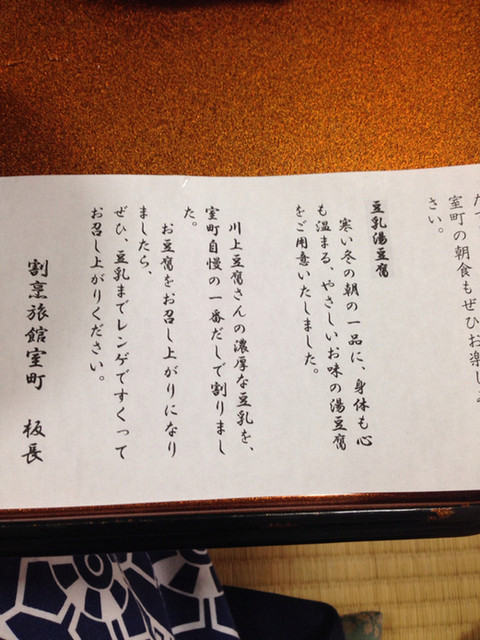 室町の朝食もぜひお楽し
さい。
豆乳湯豆腐
寒い冬の朝の一品に、身体も心
も温まる、やさしいお味の湯豆腐
をご用意いたしました。
川上豆腐さんの濃厚な豆乳を、
室町自慢の一番だしで割りまし
た。
お豆腐をお召し上がりになり
ましたら、
ぜひ、豆乳までレンゲですくって
お召し上がりください。
割烹旅館室町 板長